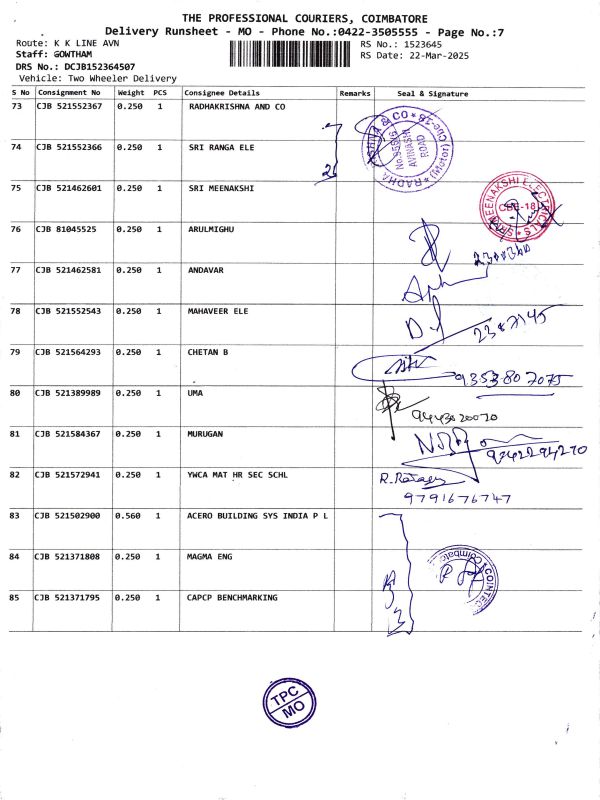 THE PROFESSIONAL COURIERS, COIMBATORE
Delivery Runsheet - MO - Phone No.:0422-3505555 - Page No.:7
Route: K K LINE AVN
RS No.: 1523645
Staff: GOWTHAM
RS Date: 22-Mar-2025
DRS No.: DCJB152364507
Vehicle: Two Wheeler Delivery
S No Consignment No Weight PCS Consignee Details Remarks Seal & Signature
73 CJB 521552367 0.250 1 RADHAKRISHNA AND CO
74 CJB 521552366 0.250 1 SRI RANGA ELE
AVINASHI
ROAD
75 CJB 521462601 0.250 1 SRI MEENAKSHI
SRI MEENAKSHI ELECTRICALS
CBE-18
76 CJB 81045525 0.250 1 ARULMIGHU
77 CJB 521462581 0.250 1 ANDAVAR
78 CJB 521552543 0.250 1 MAHAVEER ELE
79 CJB 521564293 0.250 1 CHETAN B
9353807075
80 CJB 521389989 0.250 1 UMA
9443020020
81 CJB 521584367 0.250 1 MURUGAN
9342294270
82 CJB 521572941 0.250 1 YWCA MAT HR SEC SCHL
9791676747
83 CJB 521502900 0.560 1 ACERO BUILDING SYS INDIA P L
84 CJB 521371808 0.250 1 MAGMA ENG
85 CJB 521371795 0.250 1 CAPCP BENCHMARKING
TPC
MO